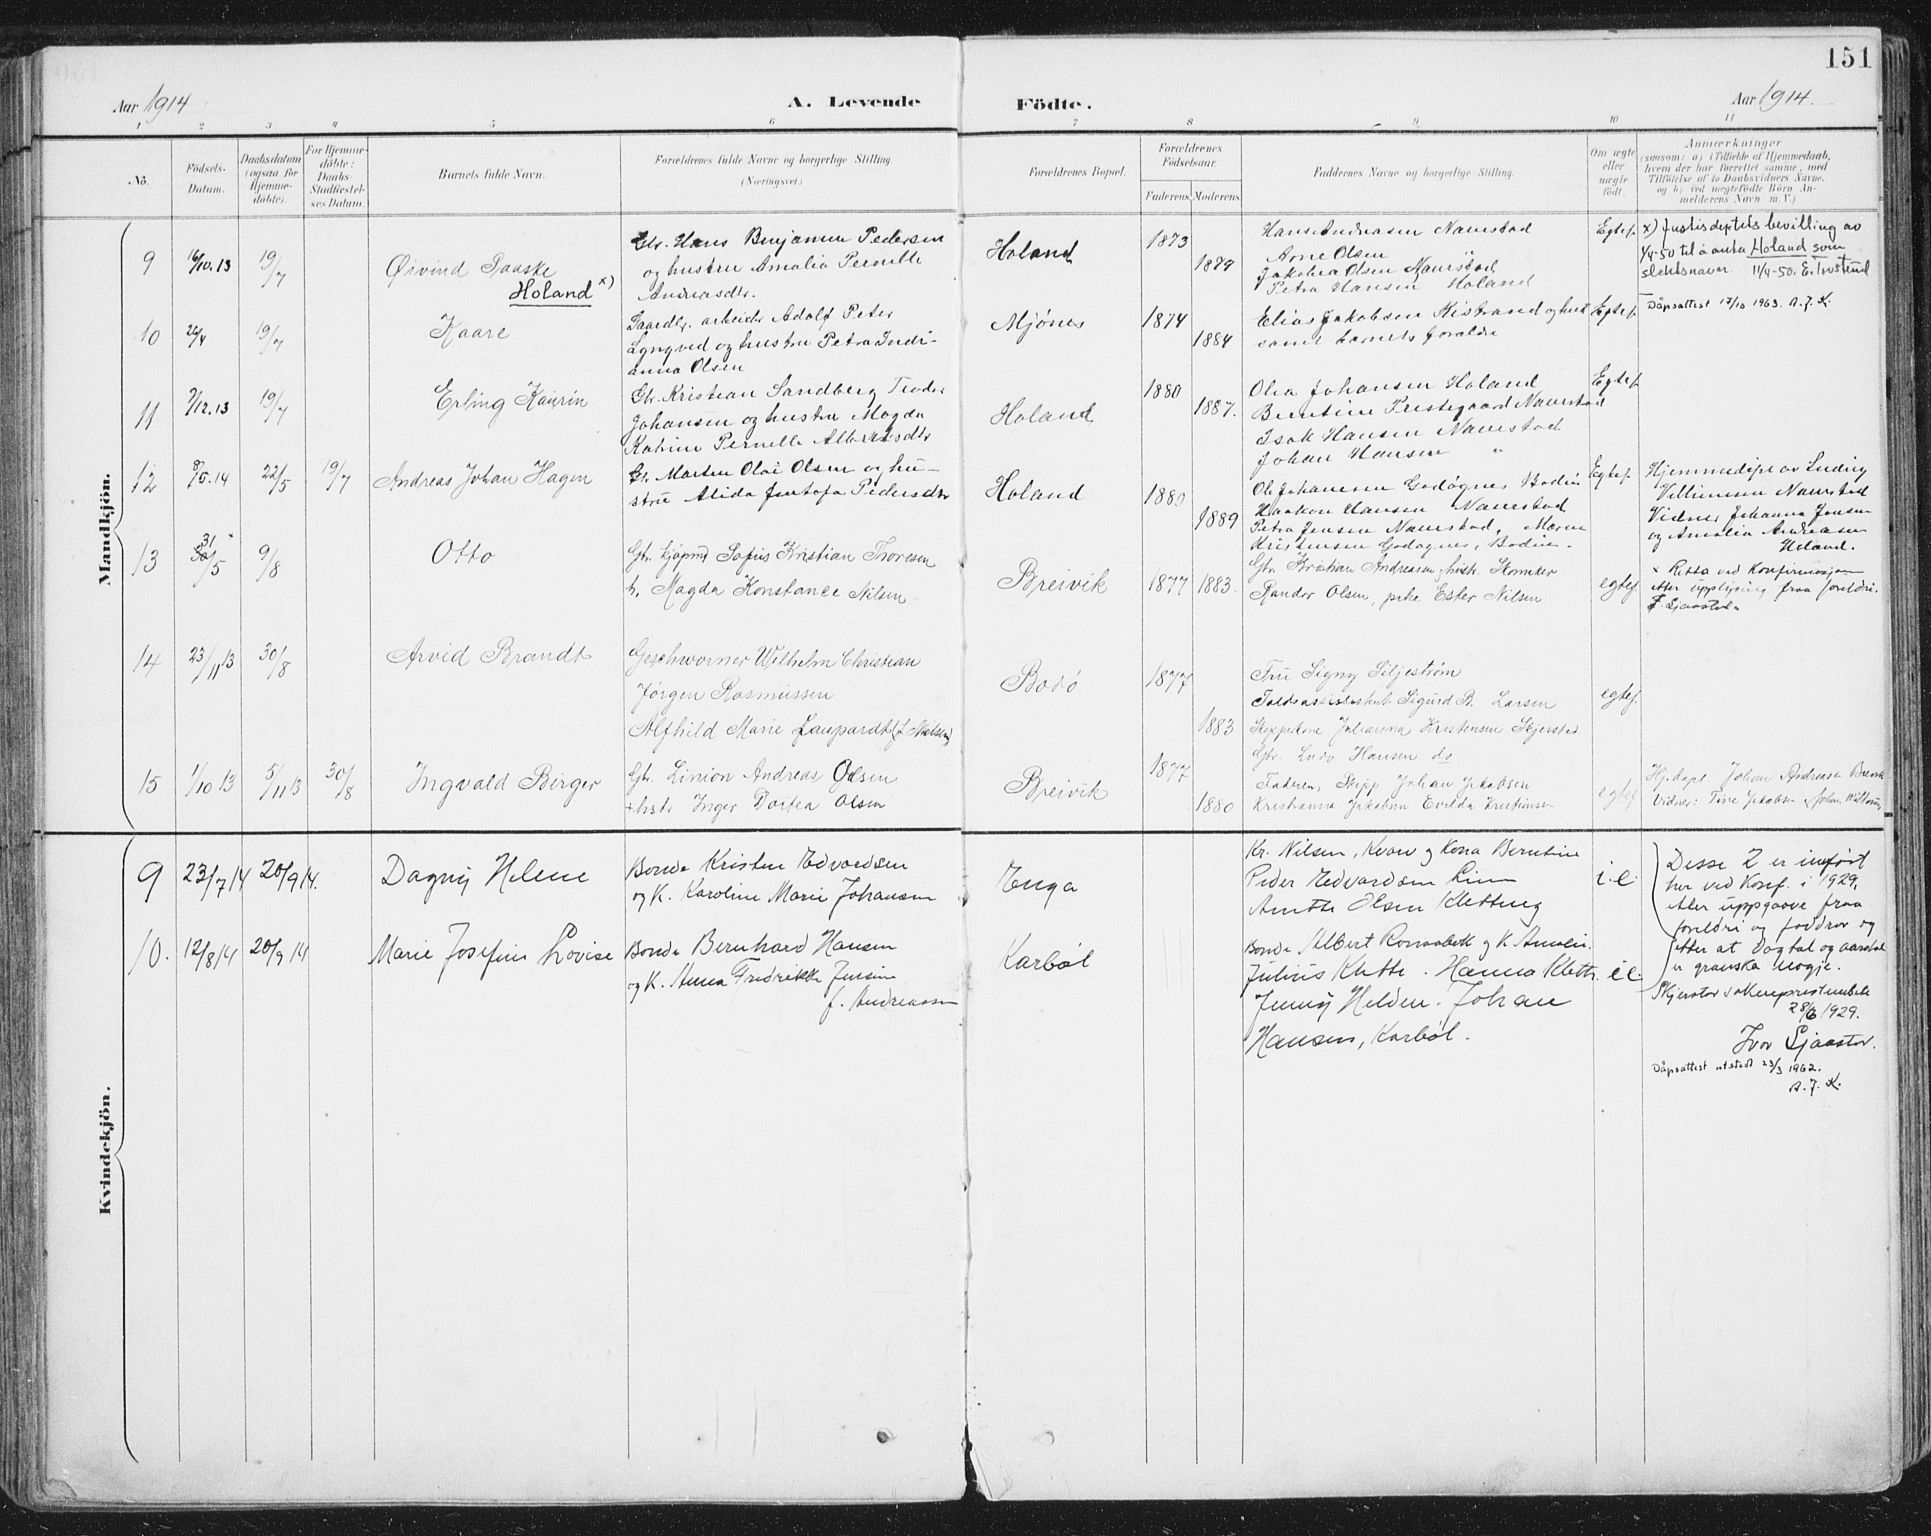 151
Aar 1914
A. Levende
Födte.
Aar 1914.
1 2 3 4 5 6 7 8 9 10 11
No.
Födsels-
Datum.
Daabsdatum
(ogsaa for
Hjemme-
döbte).
For Hjemme-
döbte:
Daabs-
Stadfæstel-
ses Datum.
Barnets fulde Navn.
Forældrenes fulde Navne og borgerlige Stilling.
(Næringsvei.)
Forældrenes Bopæl.
Forældrenes
Födselsaar.
Faderens. Moderens.
Faddernes Navne og borgerlige Stilling.
Om ægte
eller
uægte
födt.
Anmærkninger
(saasom: a) i Tilfælde af Hjemmedaab,
hvem der har forrettet samme, med
Tilföielse af to Daabsvidners Navne,
og b) ved uegtefödte Börn An-
melderens Navn m. V.)
Mandkjön.
9 16/10.13 19/7
Øivind Paaske
Holand x)
Gbr. Hans Benjamin Pedersen
og hustru Amalia Pernille
Andreasdtr.
Holand
1873
1879
Hans Andreasen Naurstad
Arne Olsen "
Jakobia Olsen Naurstad
Petra Hansen Holand
Egtef.
x) Justisdeptets bevilling av
1/4-50 til å anta Holand som
slektsnavn. 11/4-50. E. Trustrud
Dåpsattest 17/10 1963. A. J. K.
10 26/4 19/7
Kaare
Gaardbr. arbeider Adolf Peter
Lyngved og hustru Petra Indi-
anna Olsen
Mjönes
1874
1884
Elias Jakobsen Kistrand og hust
samt barnets foraldre
Egtef.
11 7/12.13 19/7
Erling Kaurin
Gbr. Kristian Sandberg Teodor
Johansen og hustru Magda
Katrine Pernille Albertsdtr
Holand
1880
1887.
Olea Johansen Holand
Berntine Prestegaard Naurstad
Isak Hansen Naurstad
Johan Hansen "
Egtef.
12 8/5.14 22/5 19/7
Andreas Johan Hagen
Gb. Morten Olai Olsen og hu-
stru Alida Jentofa Pedersdtr
Holand
1880
1889
Ole Johansen Godögnes Bodin
Haakon Hansen Naurstad
Petra Jensen Naurstad,
Kristensen Godøgnes, Bodin.
Egtef.
Hjemmedøpt av Ludvig
Villumsen Naurstad
Vidner Johanna Jensen
og Amalia Andreasen
Holand.
13 30/5 31 x 9/8
Otto
Gbr. Kjøpmd Sofus Kristian Thoresen
h. Magda Konstance Nilsen
Breivik
1877 1883.
Gbr. Kristian Andreasen, hust.
Randor Olsen, pike Ester Nilsen
egtef.
x Retta ved Konfirmasjon
etter upplysning fraa foreldri.
I. Sjaastad
14 23/11 13 30/8
Arvid Brandt
Geschworner Wilhelm Christian
Jørgen Rasmussen
Alfhild Marie Laupardt (f. Nielsen)
Bodö
1877
1883
Fru Signy Siljestrøm
Toldassistent Sigurd B. Larsen
Skipperkone Julianna Kristensen Skjerstad
Gbr. Ludv. Hansen do
egtef.
15 1/10 13 5/11 13 30/8
Ingvald Birger
Gb. Linion Andreas Olsen
+ hst. Inger Dortea Olsen
Breivik
1877
1880
Faderen, Skipp Johan Jakobsen
Kristianna Jakobsen Evelda Kristensen
egtef
Hj.døpt. Johan Andreasen Breivik
Vidner: Tine Jakobsen,
Kvindekjön.
9 23/7 14 20/9 14.
Dagny Helene
Bonde Kristen Edvardsen
og K. Karoline Marie Johansen
Enga
Kr. Nilsen, Kvæv og Kona Berntine
Peder Edvardsen Lien
Anette Olsen Kletteng
i.e.
Desse 2 er innført
her ved Konf. i 1929,
etter uppgaave fraa
foreldri og foddror og
etter at dagtal og aarstal
er granska nogje.
Skjerstad sokneprestembete
28/6 1929.
Ivar Sjaastad.
Dåpsattest utstedt 23/3 1962.
A. J. K.
10. 12/8 14 20/9 14
Marie Josefine Lovise
Bonde Bernhard Hansen
og K. Anna Fredrikke Jensine
f. Andreassen
Karbøl
Bonde Albert Ronaabekk og K. Amalie.
Julius Klette. Hanna Klette
Jenny Helden. Johan
Hansen, Karbøl.
i.e.